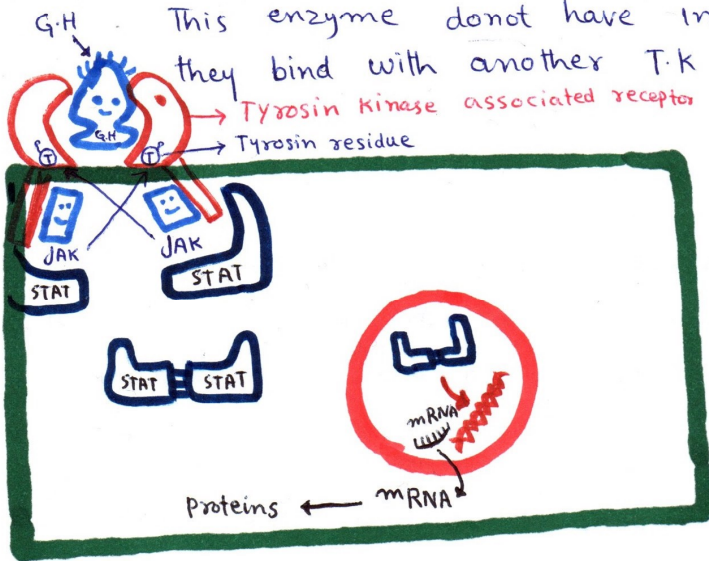 G.H This enzyme donot have In
they bind with another T.K
G.H Tyrosin kinase associated receptor
T P T P Tyrosin residue
JAK JAK
STAT STAT
STAT STAT
mRNA
Proteins ← mRNA